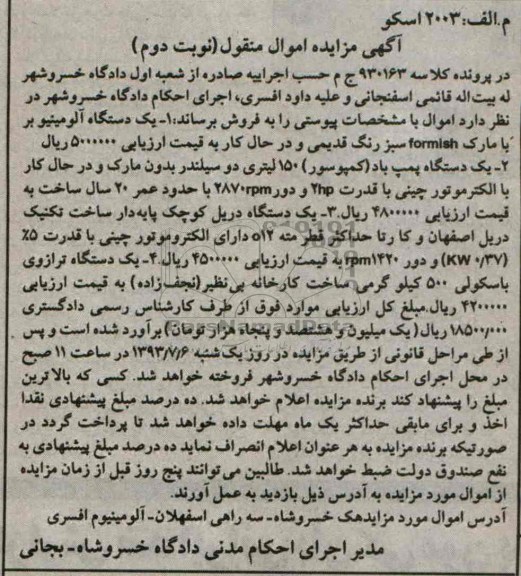 م.الف:۲۰۰۳ اسکو
آگهی مزایده اموال منقول (نوبت دوم)
در پرونده کلاسه ۹۳۰۱۶۳ ج م حسب اجراییه صادره از شعبه اول دادگاه خسروشهر
له بیت‌اله قائمی اسفنجانی و علیه داود افسری، اجرای احکام دادگاه خسروشهر در
نظر دارد اموال با مشخصات پیوستی را به فروش برساند:۱- یک دستگاه آلومینیو بر
با مارک formish سبز رنگ قدیمی و در حال کار به قیمت ارزیابی ۵۰۰۰۰۰۰ ریال
۲- یک دستگاه پمپ باد(کمپوسور) ۱۵۰ لیتری دو سیلندر بدون مارک و در حال کار
با الکتروموتور چینی با قدرت ۲hp و دور ۲۸۷۰rpm با حدود عمر ۲۰ سال ساخت به
قیمت ارزیابی ۴۸۰۰۰۰۰ ریال.۳- یک دستگاه دریل کوچک پایه‌دار ساخت تکنیک
دریل اصفهان و کا رتا حداکثر قطر مته ۵۱۲ دارای الکتروموتور چینی با قدرت ۵٪
(KW ۰/۳۷) و دور rpm۱۴۲۰ به قیمت ارزیابی ۴۵۰۰۰۰۰ ریال.۴- یک دستگاه ترازوی
باسکولی ۵۰۰ کیلو گرمی ساخت کارخانه بی‌نظیر(نجف‌زاده) به قیمت ارزیابی
۴۲۰۰۰۰۰ ریال.مبلغ کل ارزیابی موارد فوق از طرف کارشناس رسمی دادگستری
۱۸۵۰۰/۰۰۰ ریال( یک میلیون و هشتصد و پنجاه هزار تومان) برآورد شده است و پس
از طی مراحل قانونی از طریق مزایده در روز یک‌شنبه ۱۳۹۳/۷/۶ در ساعت ۱۱ صبح
در محل اجرای احکام دادگاه خسروشهر فروخته خواهد شد. کسی که بالاترین
مبلغ را پیشنهاد کند برنده مزایده اعلام خواهد شد. ده درصد مبلغ پیشنهادی نقدا
اخذ و برای مابقی حداکثر یک ماه مهلت داده خواهد شد تا پرداخت گردد در
صورتیکه برنده مزایده به هر عنوان اعلام انصراف نماید ده درصد مبلغ پیشنهادی به
نفع صندوق دولت ضبط خواهد شد. طالبین می‌توانند پنج روز قبل از زمان مزایده
از اموال مورد مزایده به آدرس ذیل بازدید به عمل آورند.
آدرس اموال مورد مزایدهک خسروشاه- سه راهی اسفهلان- آلومینیوم افسری
مدیر اجرای احکام مدنی دادگاه خسروشاه- بجانی